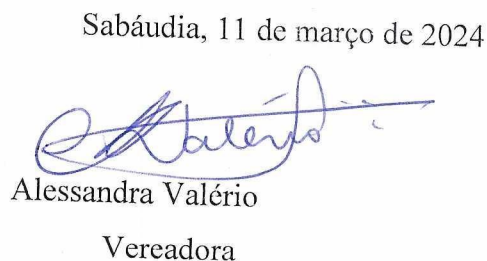 Sabáudia, 11 de março de 2024
Valério
Alessandra Valério
Vereadora